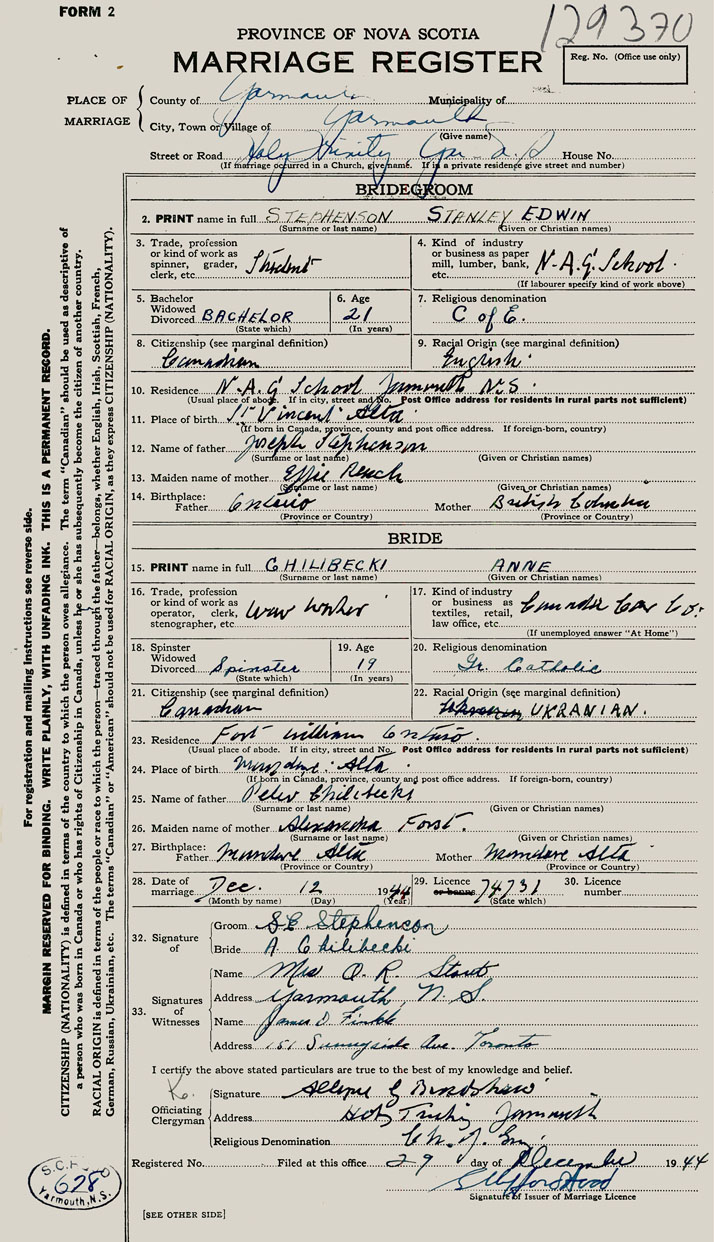 FORM 2
129370
PROVINCE OF NOVA SCOTIA
MARRIAGE REGISTER
Reg. No. (Office use only)
PLACE OF MARRIAGE
County of Yarmouth Municipality of
City, Town or Village of Yarmouth
(Give name)
Street or Road Holy Trinity, House No.
(If marriage occurred in a Church, give name. If in a private residence give street and number)
BRIDEGROOM
2. PRINT name in full STEPHENSON STANLEY EDWIN
(Surname or last name) (Given or Christian names)
3. Trade, profession or kind of work as spinner, grader, clerk, etc. Student
4. Kind of industry or business as paper mill, lumber, bank, etc. N.A.G. School.
(If labourer specify kind of work above)
5. Bachelor Widowed Divorced BACHELOR
(State which)
6. Age 21
(In years)
7. Religious denomination
C of E.
8. Citizenship (see marginal definition)
Canadian
9. Racial Origin (see marginal definition)
English
10. Residence N.A.G School Yarmouth N.S.
(Usual place of abode. If in city, street and No. Post Office address for residents in rural parts not sufficient)
11. Place of birth Vincent Alta
(If born in Canada, province, county and post office address. If foreign-born, country)
12. Name of father Joseph Stephenson
(Surname or last name) (Given or Christian names)
13. Maiden name of mother Effie
(Surname or last name) (Given or Christian names)
14. Birthplace: Father Ontario Mother British Columbia
(Province or Country) (Province or Country)
BRIDE
15. PRINT name in full CHILIBECKI ANNE
(Surname or last name) (Given or Christian names)
16. Trade, profession or kind of work as operator, clerk, stenographer, etc. War Worker
17. Kind of industry or business as textiles, retail, law office, etc. Canada Car Co.
(If unemployed answer "At Home")
18. Spinster Widowed Divorced Spinster
(State which)
19. Age 19
(In years)
20. Religious denomination
Gr. Catholic
21. Citizenship (see marginal definition)
Canadian
22. Racial Origin (see marginal definition)
UKRANIAN.
23. Residence Fort William Ontario.
(Usual place of abode. If in city, street and No. Post Office address for residents in rural parts not sufficient)
24. Place of birth Mundare Alta
(If born in Canada, province, county and post office address. If foreign-born, country)
25. Name of father Peter Chilibecki
(Surname or last name) (Given or Christian names)
26. Maiden name of mother Alexandra Forst.
(Surname or last name) (Given or Christian names)
27. Birthplace: Father Mundare Alta Mother Mundare Alta
(Province or Country) (Province or Country)
28. Date of marriage Dec. 12 1944
(Month by name) (Day) (Year)
29. Licence or banns 74731
(State which)
30. Licence number
32. Signature of
Groom S E Stephenson
Bride A. Chilibecki
33. Signatures of Witnesses
Name Mrs O. R. Stout
Address Yarmouth, N. S.
Name James D. Finkle
Address 151 Sunnyside Ave. Toronto
I certify the above stated particulars are true to the best of my knowledge and belief.
Officiating Clergyman
Signature G Bradshaw
Address Holy Trinity Yarmouth
Religious Denomination Ch. of Eng.
Registered No. Filed at this office 29 day of December 1944
Signature of Issuer of Marriage Licence
[SEE OTHER SIDE]
6280
Yarmouth, N.S.
For registration and mailing instructions see reverse side.
MARGIN RESERVED FOR BINDING. WRITE PLAINLY, WITH UNFADING INK. THIS IS A PERMANENT RECORD.
CITIZENSHIP (NATIONALITY) is defined in terms of the country to which the person owes allegiance. The term "Canadian" should be used as descriptive of
a person who was born in Canada or who has rights of Citizenship in Canada, unless he or she has subsequently become the citizen of another country.
RACIAL ORIGIN is defined in terms of the people or race to which the person—traced through the father—belongs, whether English, Irish, Scottish, French,
German, Russian, Ukrainian, etc. The terms "Canadian" or "American" should not be used for RACIAL ORIGIN, as they express CITIZENSHIP (NATIONALITY).